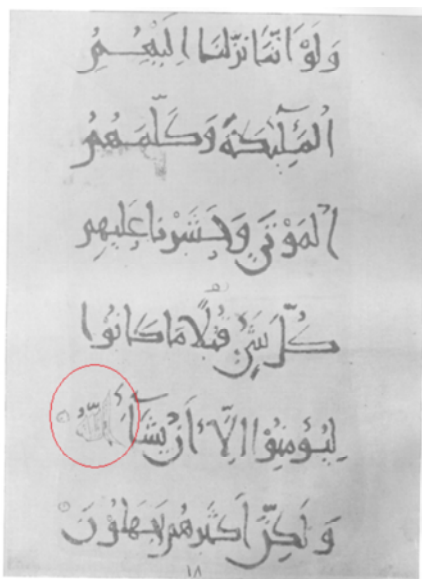 وَلَوْ اَنَّنَا نَزَّلْنَا إِلَيْهِمُ
الْمَلَٰٓئِكَةَ وَكَلَّمَهُمُ
الْمَوْتَىٰ وَحَشَرْنَا عَلَيْهِمْ
كُلَّ شَيْءٍ قُبُلًا مَا كَانُوا
لِيُؤْمِنُوا إِلَّا أَنْ يَشَآءَ اَللَّهُ
وَلَكِنَّ أَكْثَرَهُمْ يَجْهَلُونَ
١٨